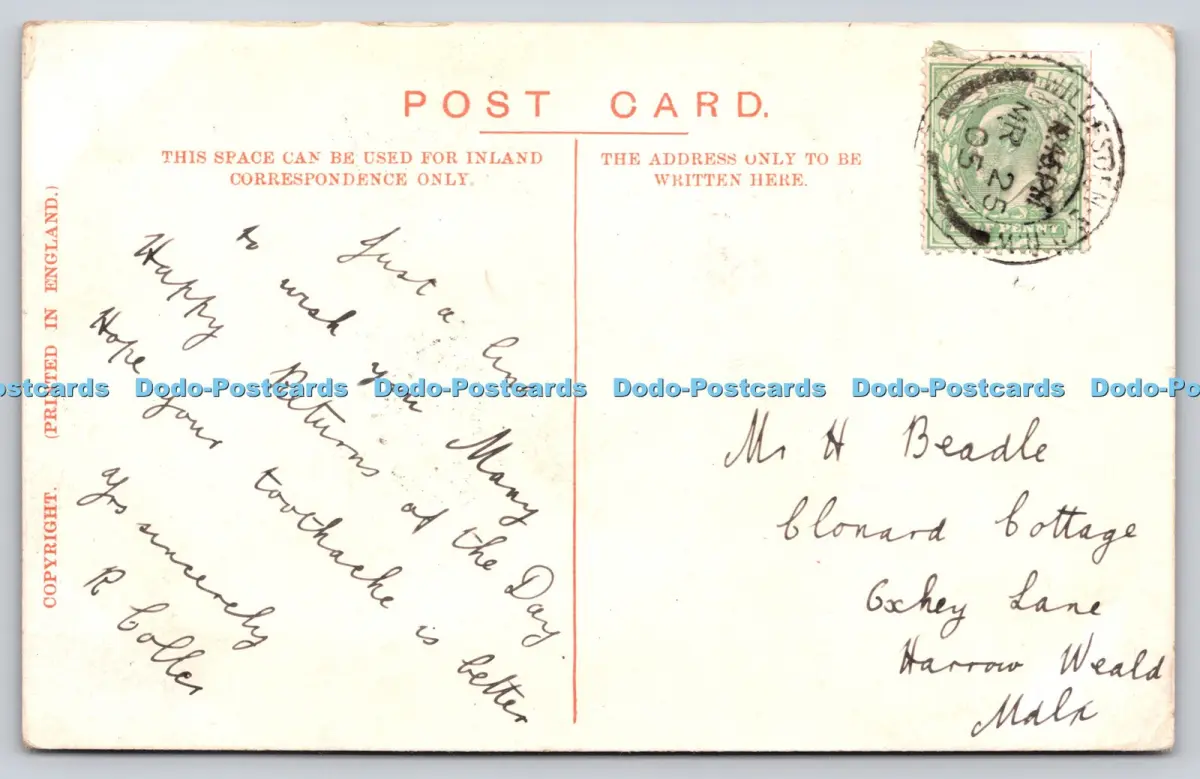 POST CARD.
THIS SPACE CAN BE USED FOR INLAND
CORRESPONDENCE ONLY.
THE ADDRESS ONLY TO BE
WRITTEN HERE.
COPYRIGHT. (PRINTED IN ENGLAND.)
Just a line
to wish you Many
Happy Returns of the Day.
Hope your toothache is better
Yrs sincerely
R Coller
WILLESDEN
MR 25
05
HALF PENNY
Mr H Beadle
Clonard Cottage
Oxhey Lane
Harrow Weald
Mdlx
Dodo-Postcards Dodo-Postcards Dodo-Postcards Dodo-Postcards Dodo-Postcards Dodo-Po